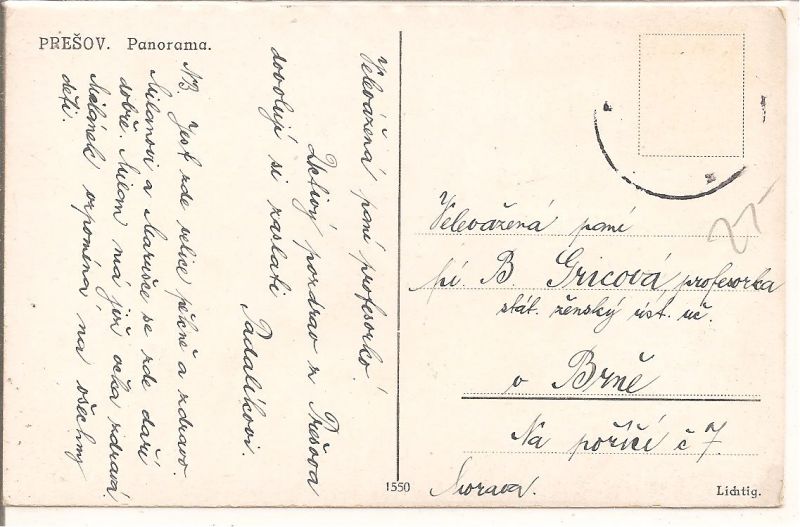 PREŠOV. Panorama.
Velevážená paní profesorko!
Uctivý pozdrav z Prešova
dovolují si zaslati
Padalíkovi.
NB Jest zde velice pěkně a zdravo.
Milanovi a Marušce se zde daří
dobře. Milan má již očka zdravá
Milánek vzpomíná na všechny
děti.
Velevážená paní
pí. B. Gricová profesorka
stát. ženský úst. uč.
v Brně
Na poříčí č 7.
Morava.
1550
Lichtig.